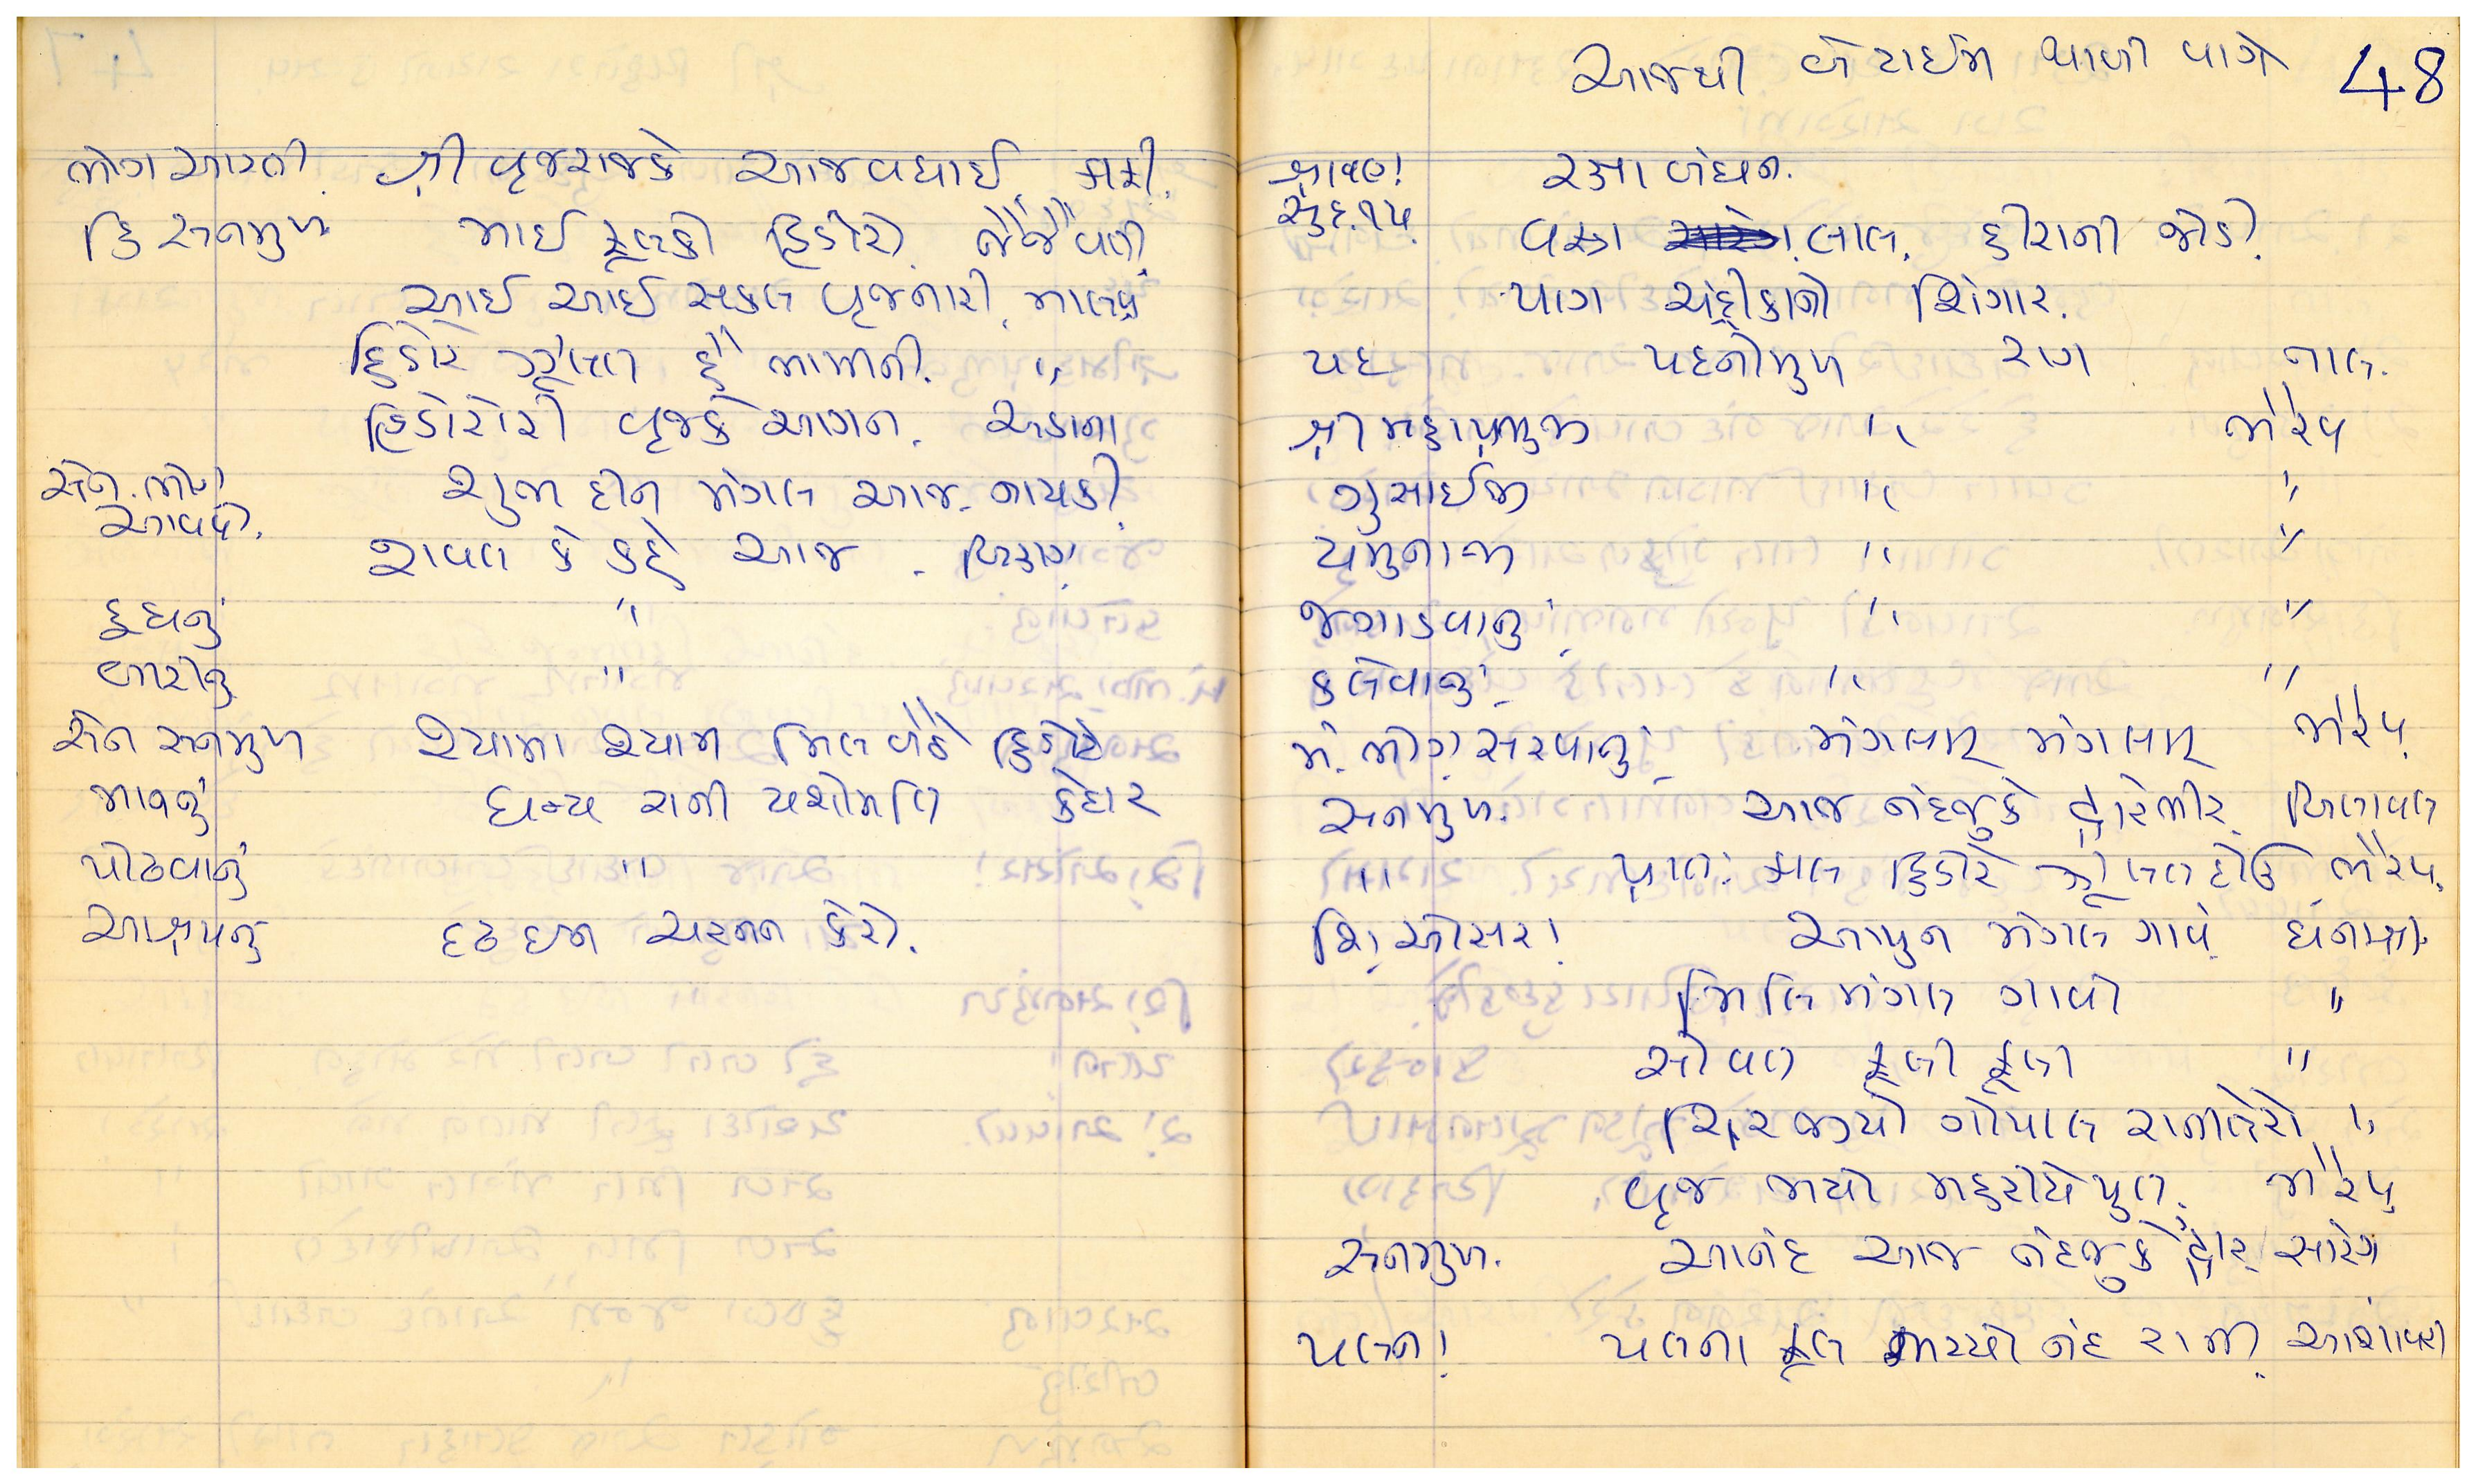 ભોગ આરતી. શ્રી વૃજરાજકે આજ વધાઈ.
હિ સનમુખ માઈ ફૂલકો હિંડોરો. જૈજૈવંતી
આઈ આઈ સકલ વૃજનારી. માલવ
હિંડોરે ઝૂલત હૈં ભામિની. "
હિંડોરોરી વૃજકે આંગન. અડાના
સેન. ભોગ શુભ દીન મંગલ આજ. નાયકી
આવવો.
રાવલ કે કહે આજ. બિહાગ
દુધનું "
બીરીનું "
સેન સનમુખ શ્યામા શ્યામ મિલ બેઠે હિંડોરે
માનનું ધન્ય રાની યશોમતિ કેદાર
પોઢવાનું "
આશ્રયનું દઢ ઇન ચરનન કેરો.
આજથી બે ટાઈમ થાળી વાગે 48
શ્રાવણ! રક્ષા બંધન.
સુદ. ૧૫. વસ્ત્રા લાલ. હીરાની જોડી.
પાગ ચંદ્રીકાનો શિંગાર.
પદ પદનીમુખ રાગ તાલ.
શ્રી મહાપ્રભુજી " ભૈરવ
ગુસાઈજી " "
યમુનાજી " "
જગાડવાનું " "
કલેવાનું " "
મં. ભોગ. સરવાનું મંગલમ્ મંગલમ્ ભૈરવ.
સનમુખ. આજ નંદજુકે દ્વારેભીર. બિલાવલ
" પ્રાત: કાલ હિંડોરે ઝૂલત દોઉ ભૈરવ.
શિં. ઓસરા! આપુન મંગલ ગાવે. ધનાશ્રી
મિલિ મંગલ ગાવો "
સોવત ફૂલી ફૂલી "
ચિરજીયો ગોપાલ રાનીતેરો "
વૃજ ભયો મહરીકેપુત. ભૈરવ
સનમુખ. આનંદ આજ નંદજુકે દ્વાર. સારંગ
પલના! પલના ફૂલ ભરયો નંદ રાની. આશાવરી